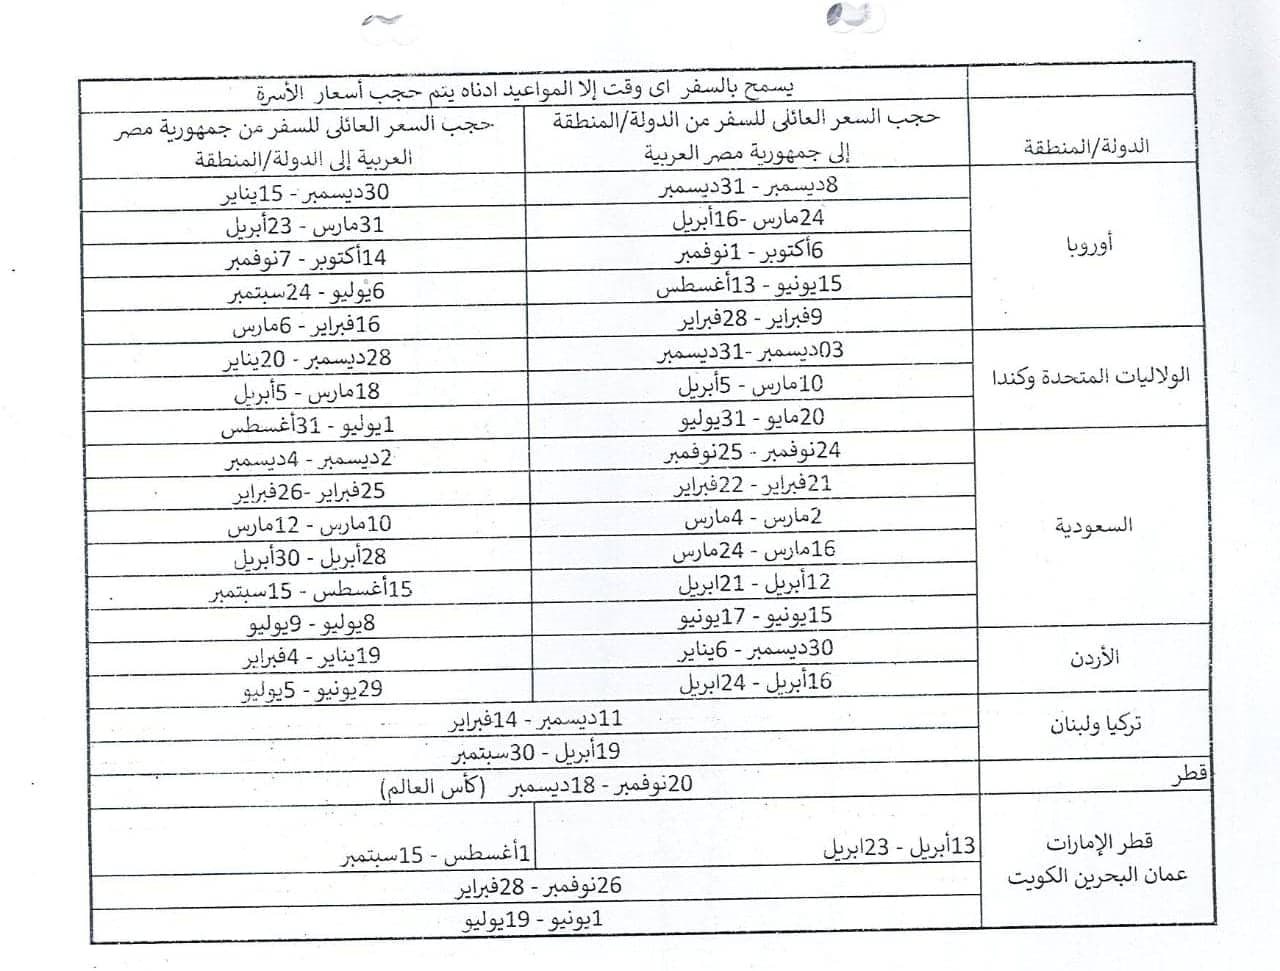 يسمح بالسفر اى وقت إلا المواعيد ادناه يتم حجب أسعار الأسرة
الدولة/المنطقة
حجب السعر العائلى للسفر من الدولة/المنطقة
إلى جمهورية مصر العربية
حجب السعر العائلى للسفر من جمهورية مصر
العربية إلى الدولة/المنطقة
أوروبا
8ديسمبر - 31ديسمبر
30ديسمبر - 15يناير
24مارس -16أبريل
31مارس - 23أبريل
6أكتوبر - 1نوفمبر
14أكتوبر - 7نوفمبر
15يونيو - 13أغسطس
6يوليو - 24سبتمبر
9فبراير - 28فبراير
16فبراير - 6مارس
الولاليات المتحدة وكندا
03ديسمبر -31ديسمبر
28ديسمبر - 20يناير
10مارس - 5أبريل
18مارس - 5أبريل
20مايو - 31يوليو
1يوليو - 31أغسطس
السعودية
24نوفمبر - 25نوفمبر
2ديسمبر - 4ديسمبر
21فبراير - 22فبراير
25فبراير -26فبراير
2مارس - 4مارس
10مارس - 12مارس
16مارس - 24مارس
28أبريل - 30أبريل
12أبريل - 21ابريل
15أغسطس - 15سبتمبر
15يونيو - 17يونيو
8يوليو - 9يوليو
الأردن
30ديسمبر - 6يناير
19يناير - 4فبراير
16أبريل - 24ابريل
29يونيو - 5يوليو
تركيا ولبنان
11ديسمبر - 14فبراير
19أبريل - 30سبتمبر
قطر
20نوفمبر - 18ديسمبر (كأس العالم)
قطر الإمارات
عمان البحرين الكويت
13أبريل - 23ابريل
1أغسطس - 15سبتمبر
26نوفمبر - 28فبراير
1يونيو - 19يوليو